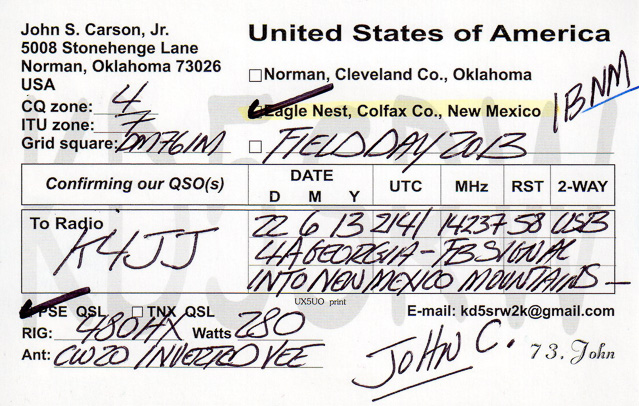 John S. Carson, Jr.
5008 Stonehenge Lane
Norman, Oklahoma 73026
USA
CQ zone: 4
ITU zone: 7
Grid square: DM76IM
United States of America
Norman, Cleveland Co., Oklahoma
Eagle Nest, Colfax Co., New Mexico
1BNM
FIELD DAY 2013
Confirming our QSO(s)
DATE
D M Y
UTC
MHz
RST
2-WAY
To Radio
K4JJ
22 6 13 2141 14237 58 USB
4A GEORGIA - FB SIGNAL
INTO NEW MEXICO MOUNTAINS -
UX5UO print
PSE QSL TNX QSL
E-mail: kd5srw2k@gmail.com
RIG: 480HX Watts 280
Ant: CW20 INVERTED VEE
JOHN C.
73, John
KD5SRW